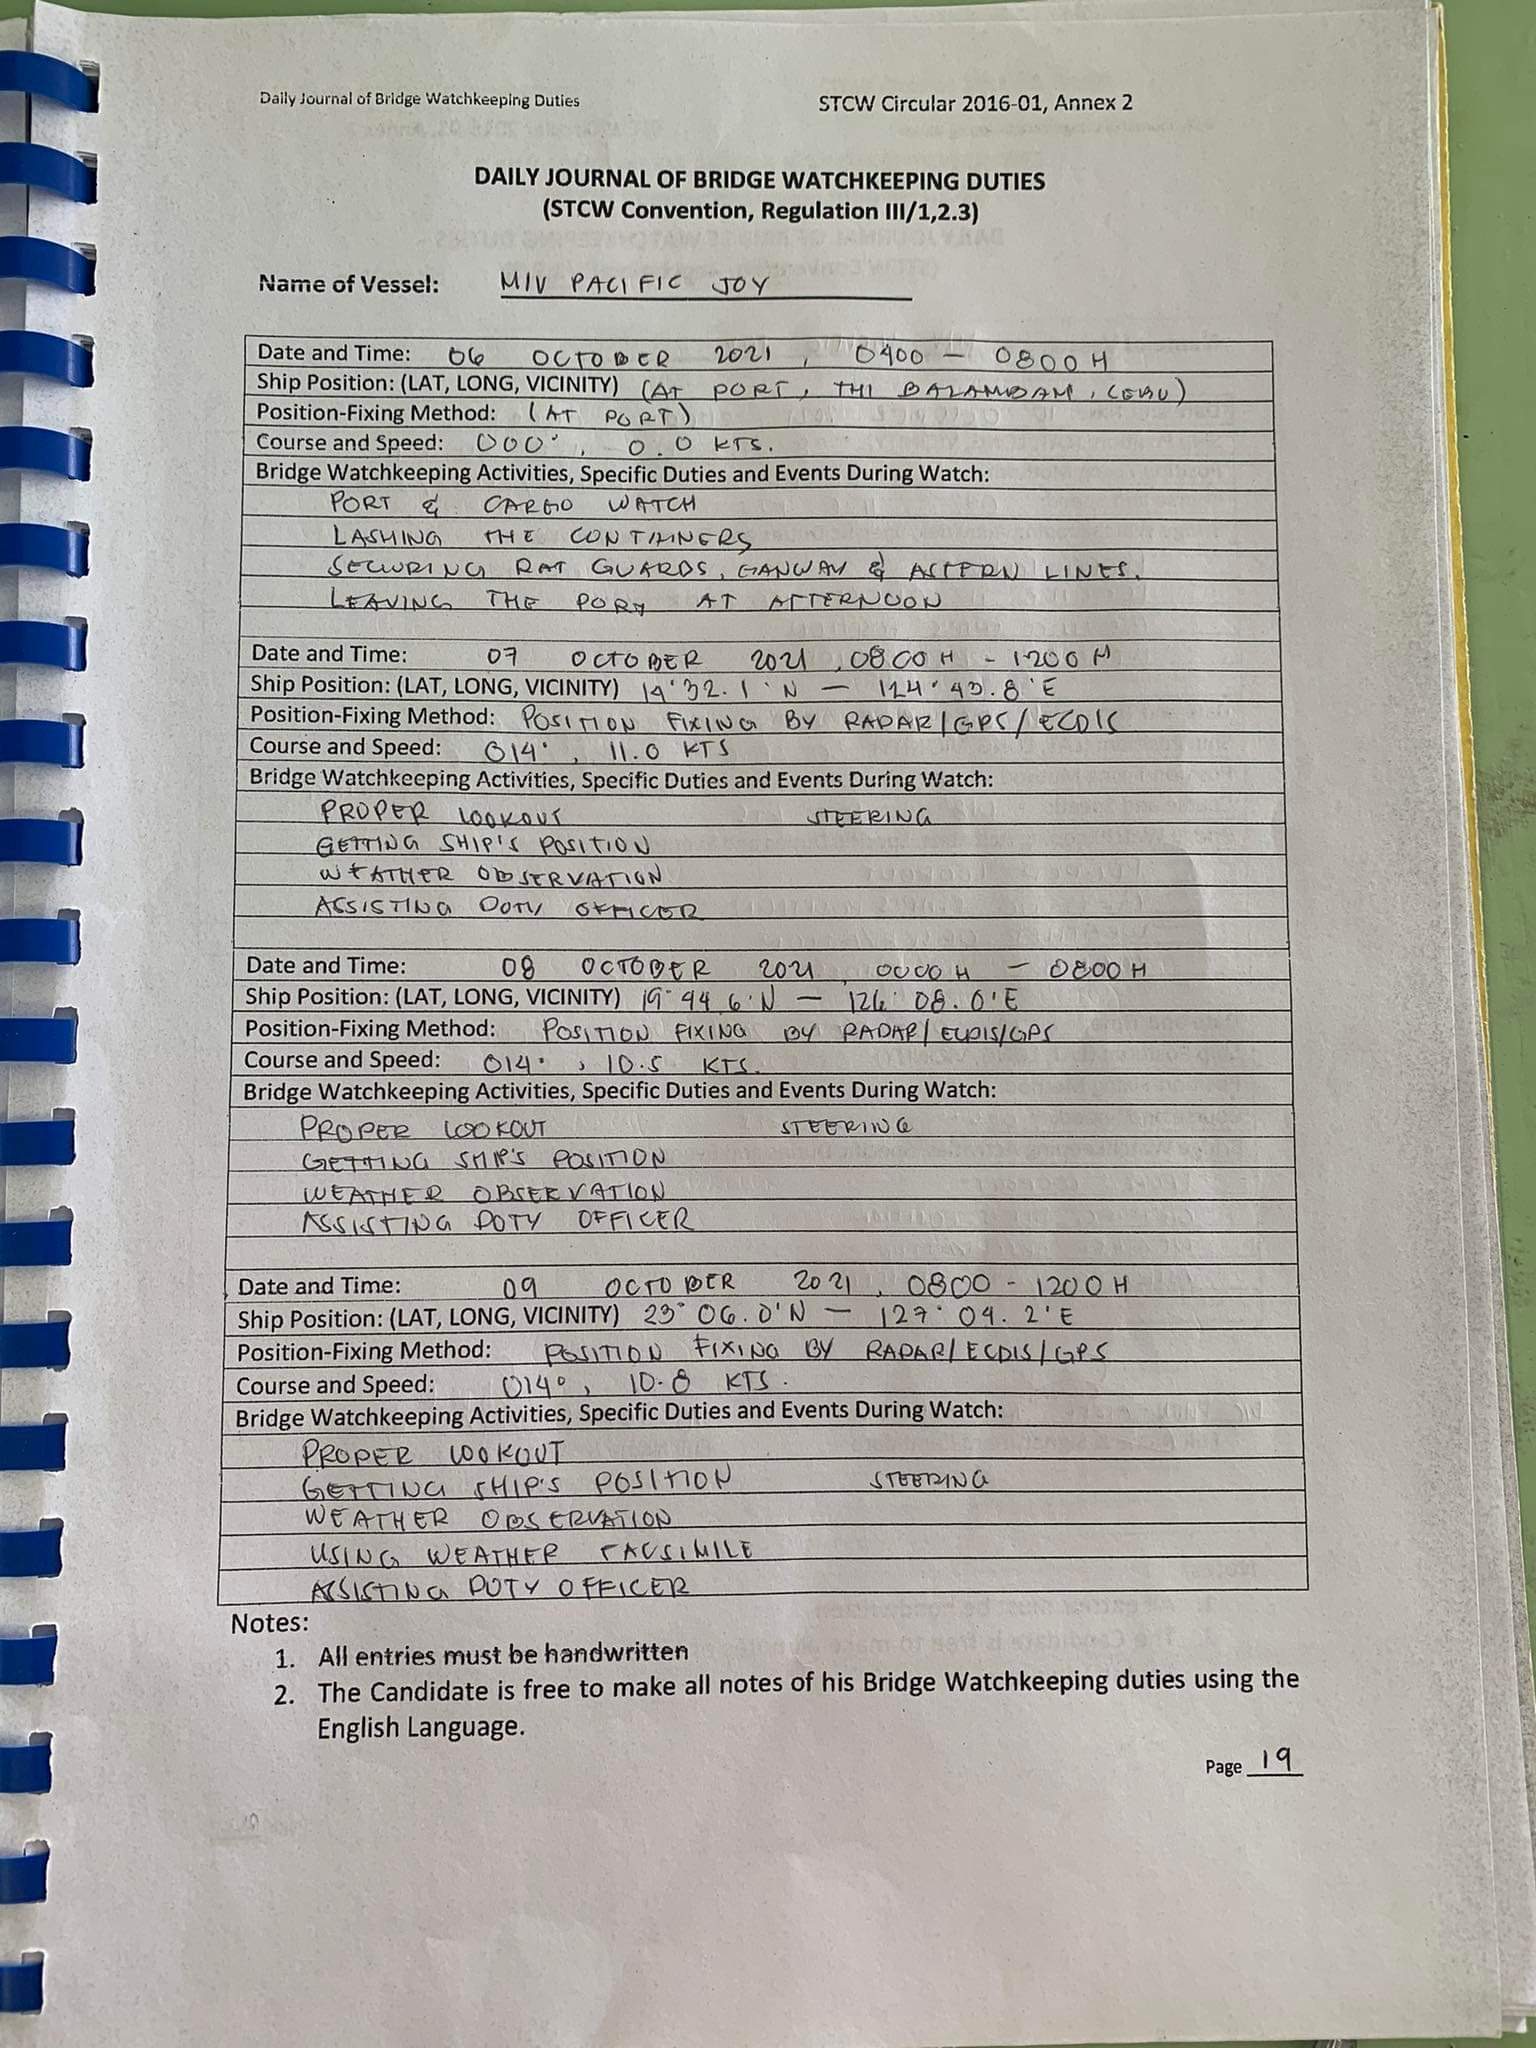 Daily Journal of Bridge Watchkeeping Duties STCW Circular 2016-01, Annex 2
DAILY JOURNAL OF BRIDGE WATCHKEEPING DUTIES
(STCW Convention, Regulation III/1,2.3)
Name of Vessel: M/V PACIFIC JOY
Date and Time: 06 OCTOBER 2021, 0400 - 0800 H
Ship Position: (LAT, LONG, VICINITY) (AT PORT, THI BALAMBAM, CEBU)
Position-Fixing Method: (AT PORT)
Course and Speed: 000°, 0.0 KTS.
Bridge Watchkeeping Activities, Specific Duties and Events During Watch:
PORT & CARGO WATCH
LASHING THE CONTAINERS
SECURING RAT GUARDS, GANWAY & ASTERN LINES.
LEAVING THE PORT AT AFTERNOON
Date and Time: 07 OCTOBER 2021, 0800 H - 1200 H
Ship Position: (LAT, LONG, VICINITY) 14°32.1'N - 124°43.8'E
Position-Fixing Method: POSITION FIXING BY RADAR/GPS/ECDIS
Course and Speed: 014°, 11.0 KTS
Bridge Watchkeeping Activities, Specific Duties and Events During Watch:
PROPER LOOKOUT STEERING
GETTING SHIP'S POSITION
WEATHER OBSERVATION
ASSISTING DUTY OFFICER
Date and Time: 08 OCTOBER 2021 0000 H - 0800 H
Ship Position: (LAT, LONG, VICINITY) 19°44.6'N - 126°08.0'E
Position-Fixing Method: POSITION FIXING BY RADAR/ECDIS/GPS
Course and Speed: 014°, 10.5 KTS.
Bridge Watchkeeping Activities, Specific Duties and Events During Watch:
PROPER LOOKOUT STEERING
GETTING SHIP'S POSITION
WEATHER OBSERVATION
ASSISTING DUTY OFFICER
Date and Time: 09 OCTOBER 2021, 0800 - 1200 H
Ship Position: (LAT, LONG, VICINITY) 23°06.0'N - 127°04.2'E
Position-Fixing Method: POSITION FIXING BY RADAR/ECDIS/GPS
Course and Speed: 014°, 10.8 KTS.
Bridge Watchkeeping Activities, Specific Duties and Events During Watch:
PROPER LOOKOUT
GETTING SHIP'S POSITION STEERING
WEATHER OBSERVATION
USING WEATHER FACSIMILE
ASSISTING DUTY OFFICER
Notes:
1. All entries must be handwritten
2. The Candidate is free to make all notes of his Bridge Watchkeeping duties using the
English Language.
Page 19